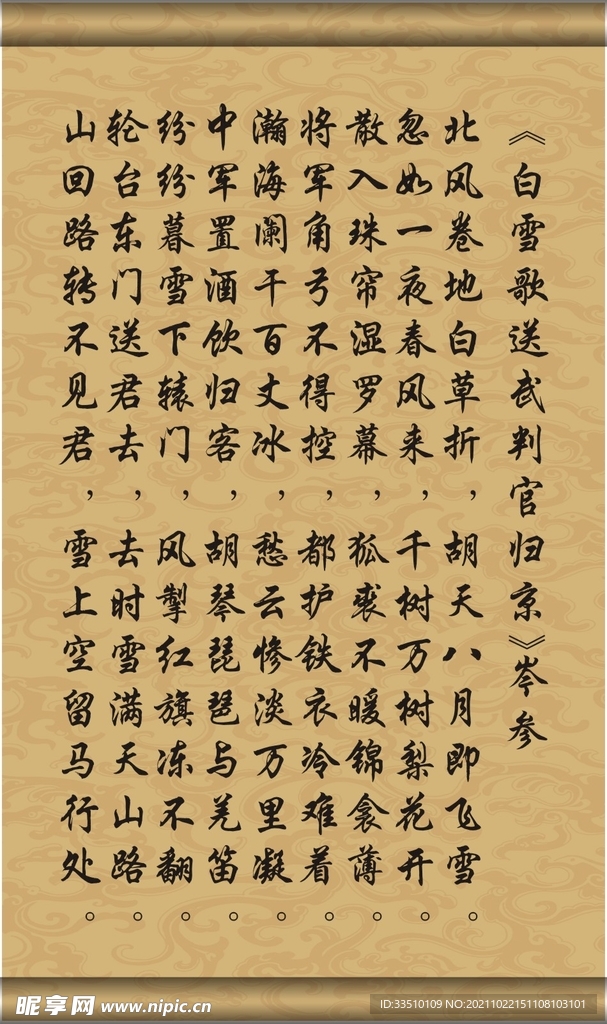 《白雪歌送武判官归京》岑参
北风卷地白草折，胡天八月即飞雪。
忽如一夜春风来，千树万树梨花开。
散入珠帘湿罗幕，狐裘不暖锦衾薄。
将军角弓不得控，都护铁衣冷难着。
瀚海阑干百丈冰，愁云惨淡万里凝。
中军置酒饮归客，胡琴琵琶与羌笛。
纷纷暮雪下辕门，风掣红旗冻不翻。
轮台东门送君去，去时雪满天山路。
山回路转不见君，雪上空留马行处。
昵享网 www.nipic.cn
ID:33510109 NO:20211022151108103101